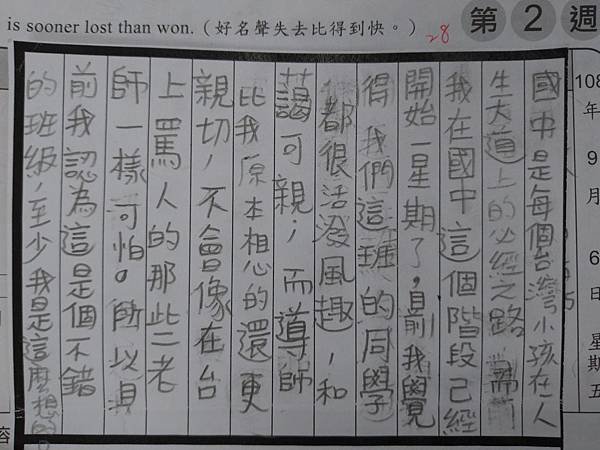 is sooner lost than won.（好名聲失去比得到快。）
28
第2週
108年9月6日星期五
國中是每個台灣小孩在人
生大道上的必經之路，而
我在國中這個階段己經
開始一星期了，目前我覺
得我們這班的同學
都很活潑風趣，和
藹可親，而導師
比我原本想的還更
親切，不會像在台
上罵人的那些老
師一樣可怕。所以目
前我認為這是個不錯
的班級，至少我是這麼想的。
容